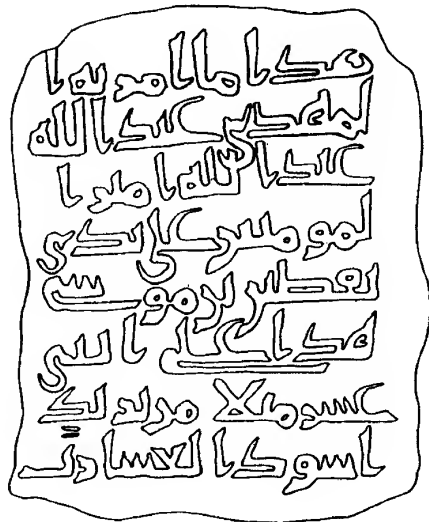 هدا ما امر به ا
لمهدي عبد الله
عبد الله امير ا
لمومنين على يدي
يقطين بن موسى
هدا على اثني
عشر ميلا من